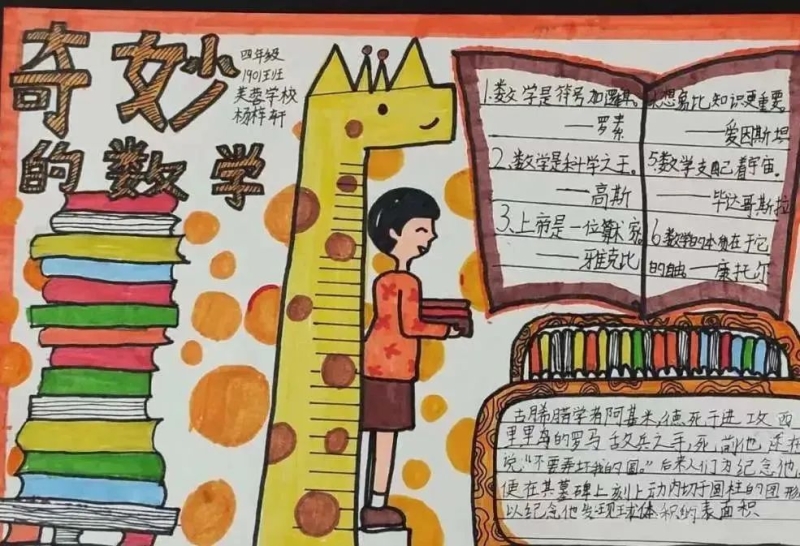 奇妙
的数学
四年级
1901班
芙蓉学校
杨梓轩
1.数学是符号加逻辑。
——罗素
2.数学是科学之王。
——高斯
3.上帝是一位算术家
——雅克比
想象比知识更重要。
——爱因斯坦
5.数学支配着宇宙。
——毕达哥斯拉
6.数学的本质在于它
的自由——康托尔
古腊腊学者阿基米德死于进攻西
里岛的罗马敌兵之手,死前他还在
说"不要弄坏我的圆。"后来人们为纪念他,
便在其墓碑上刻上动内切于圆柱的图形
以纪念他发现球体积的表面积